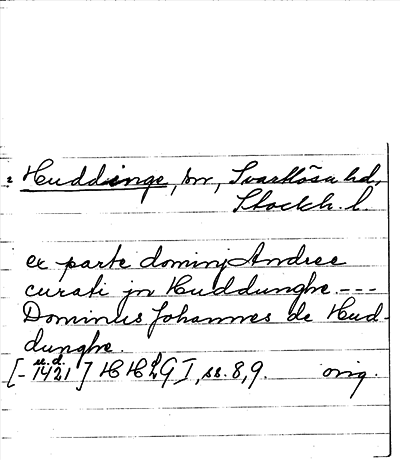 Huddinge, sn, Svartlösa hd,
Stockh. l.
ex parte dominj Andree
curati jn Huddunghe. ---
Dominus Johannes de Hud-
dunghe.
u.d.
[-1421] HH 2 G I, ss. 8, 9. orig.